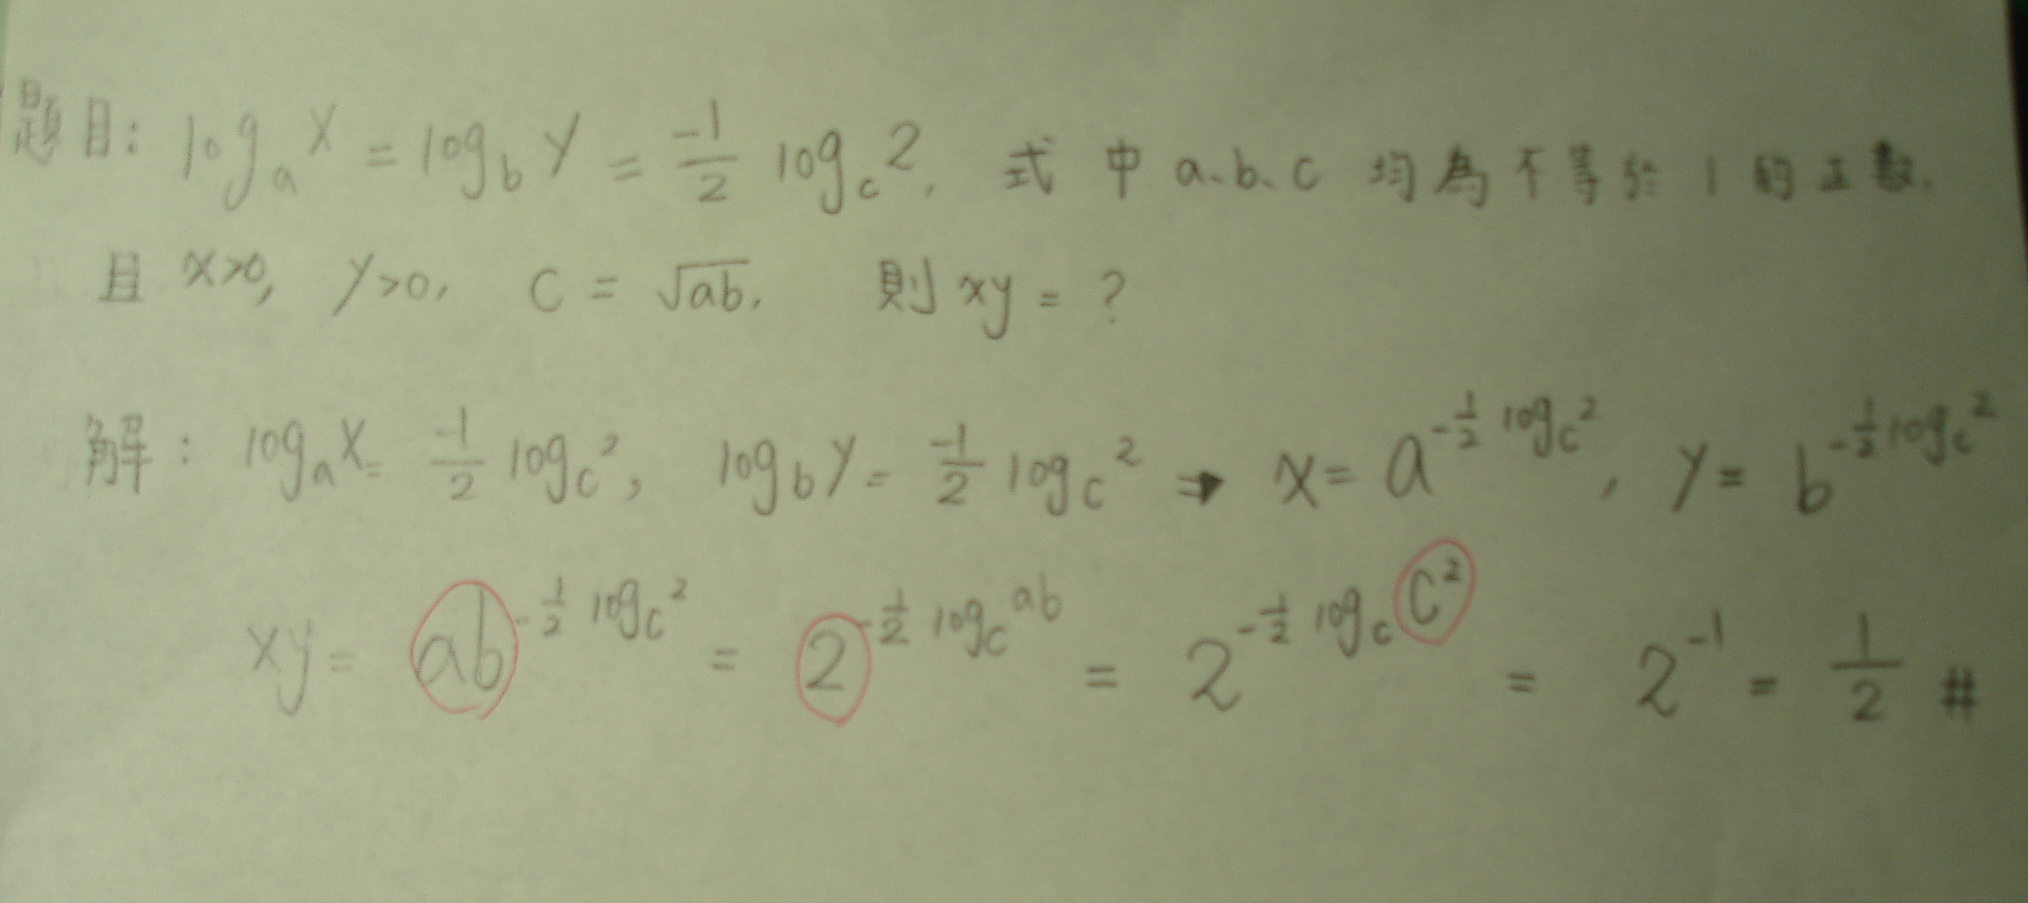 題目: logₐ x = log_b y = -1/2 log_c 2, 式中 a、b、c 均為不等於 1 的正數,
且 x>0, y>0, c = √ab, 則 xy = ?
解: logₐ x = -1/2 log_c 2, log_b y = -1/2 log_c 2 → x = a^(-1/2 log_c 2), y = b^(-1/2 log_c 2)
xy = ab^(-1/2 log_c 2) = 2^(-1/2 log_c ab) = 2^(-1/2 log_c c²) = 2⁻¹ = 1/2 #